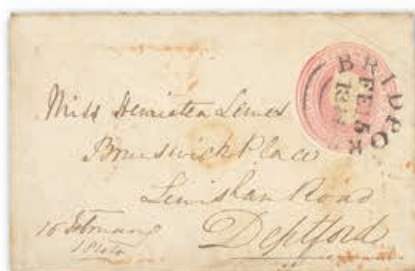 BRIDPOR
FE 15
Miss Henrietta Lewes
Brunswick Place
Lewisham Road
Deptford
15 February